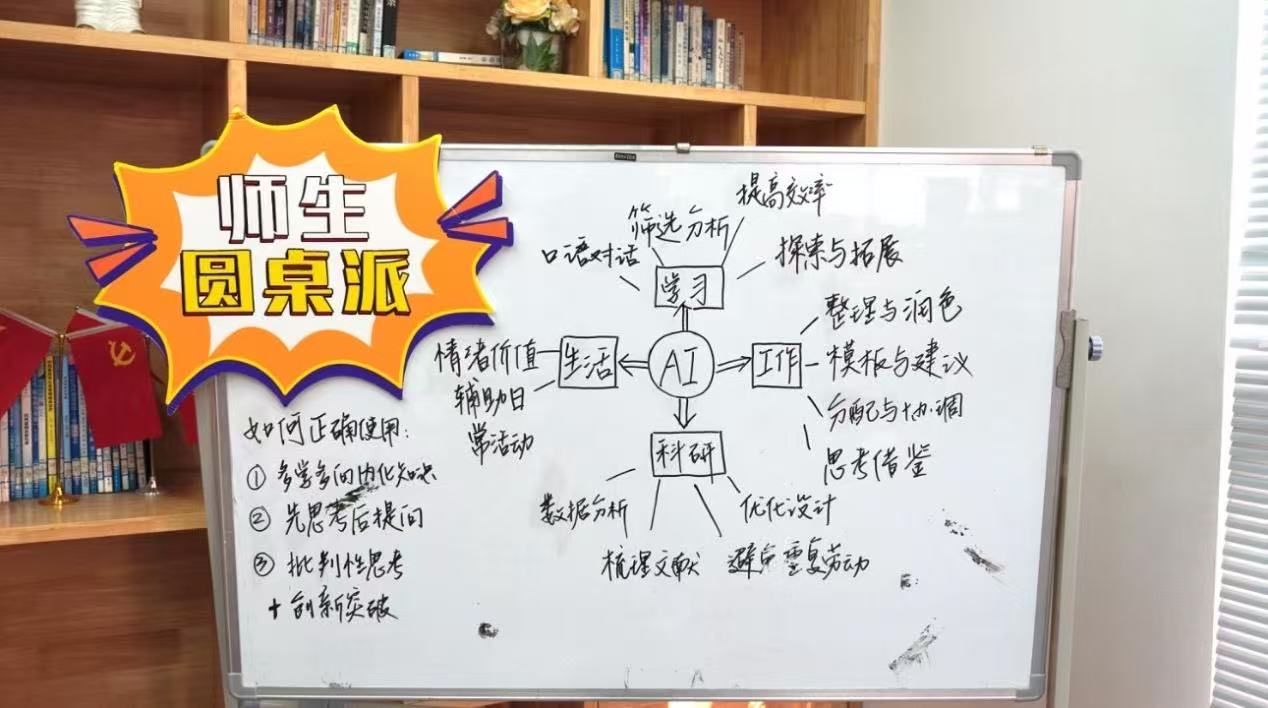 师生
圆桌派
提高效率
筛选分析
口语对话
探索与拓展
学习
整理与润色
情绪价值
生活
AI
工作
模板与建议
辅助日
常活动
分配与协调
思考借鉴
科研
数据分析
优化设计
梳理文献
避免重复劳动
如何正确使用:
① 多学多问内化知识
② 先思考后提问
③ 批判性思考
+创新突破